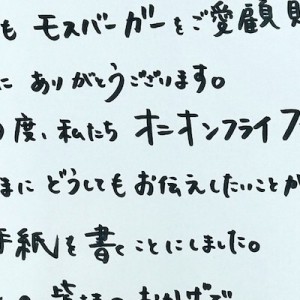 も モスバーガーをご愛顧
に ありがとうございます。
度、私たち オニオンフライフ
まに どうしてもお伝えしたいことが
手紙を書くことにしました。
皆様のおかげで